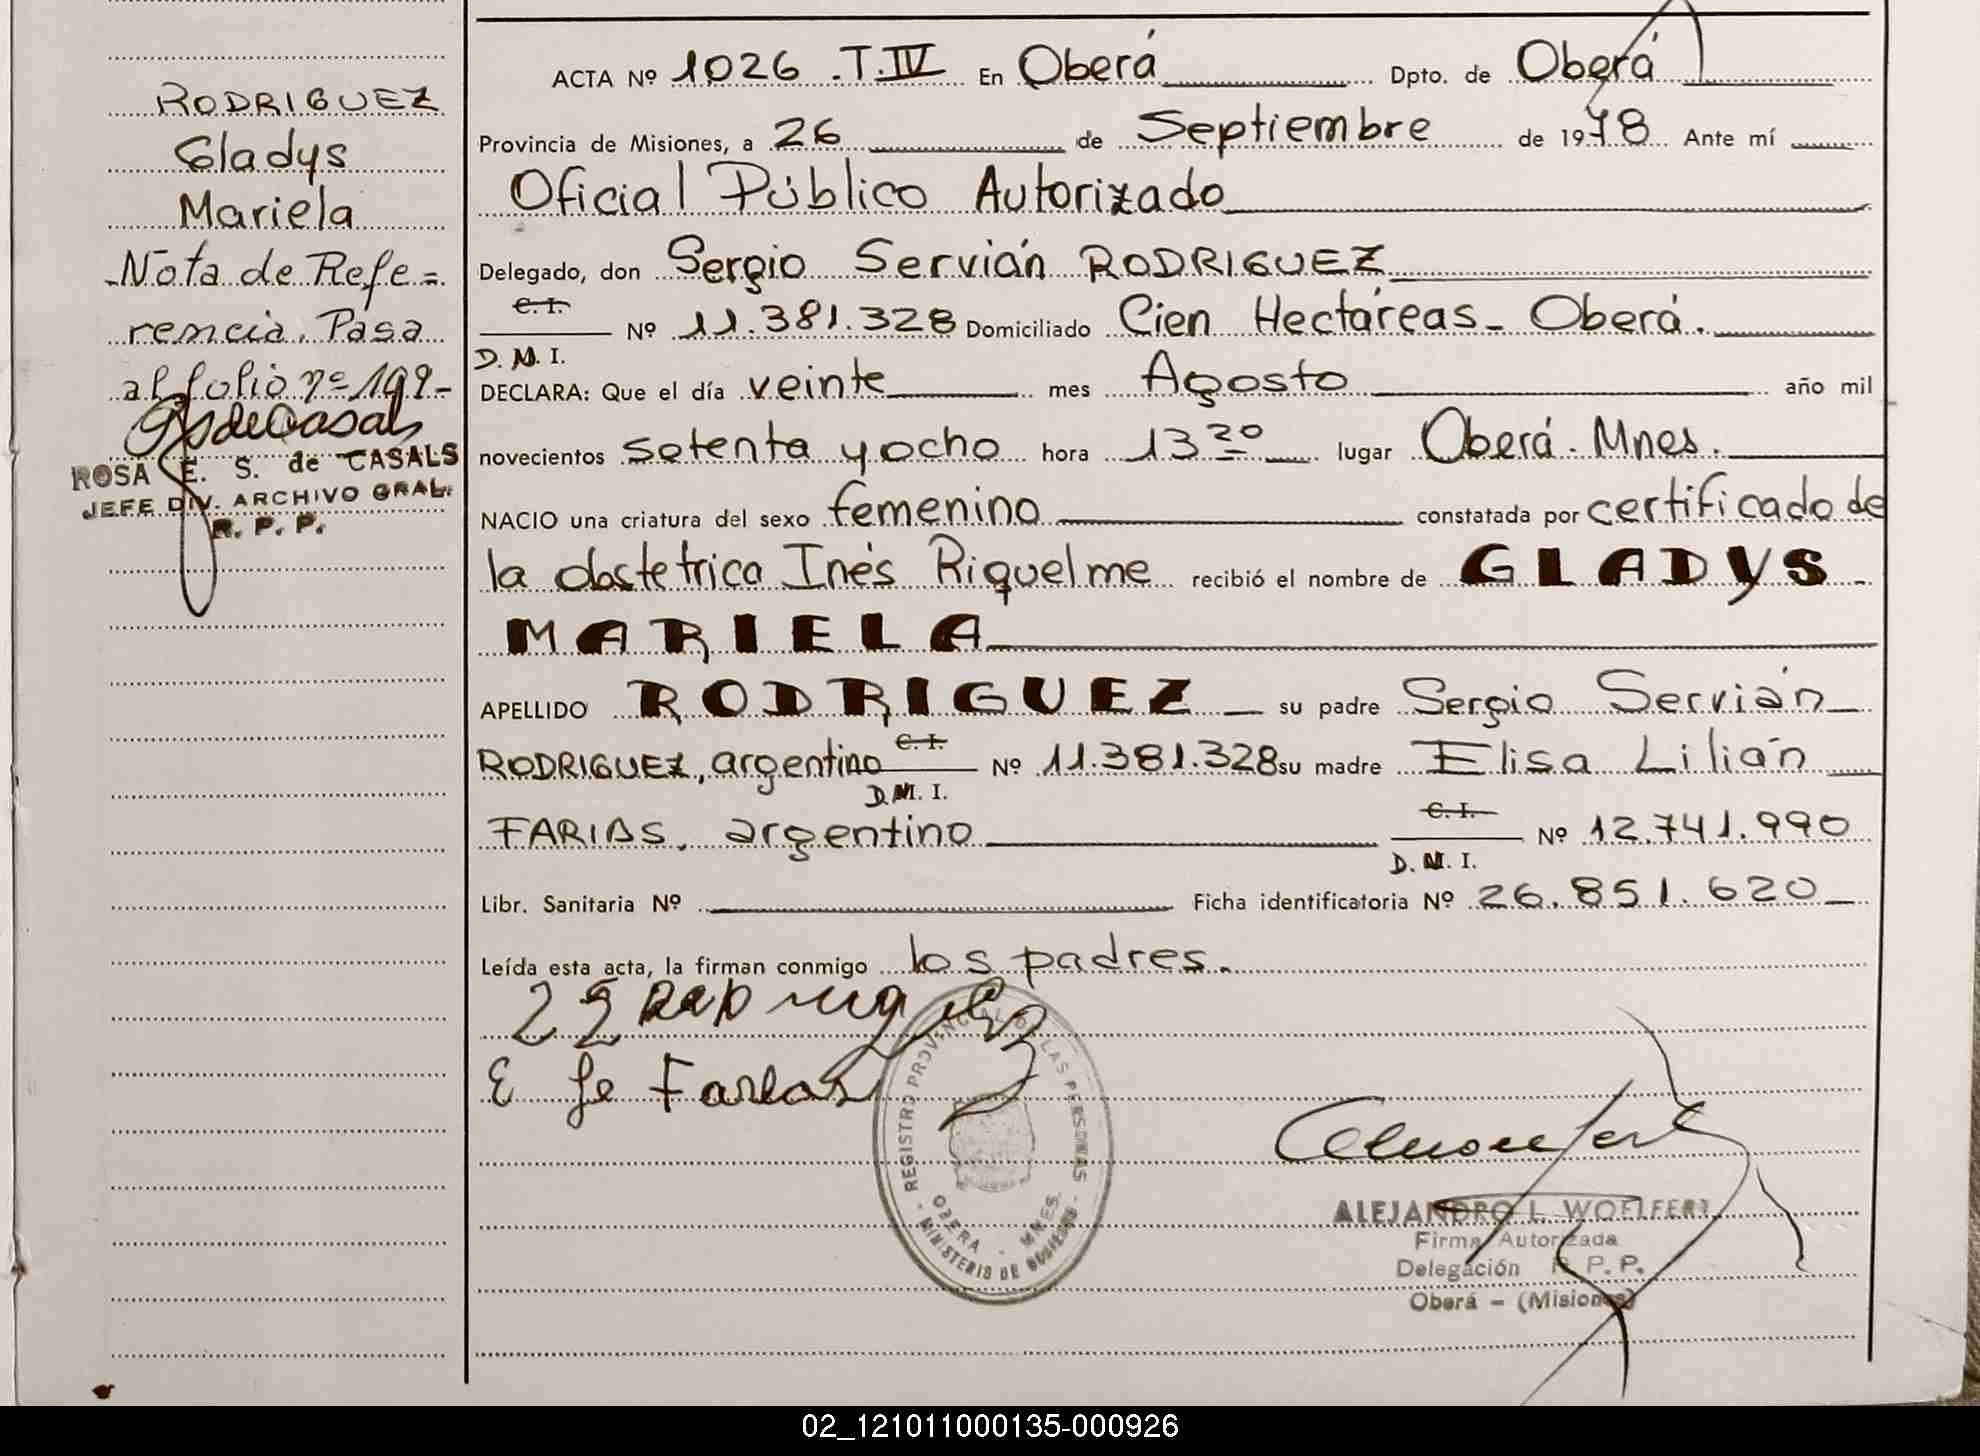 RODRIGUEZ
Gladys
Mariela
Nota de Refe=
rencia. Pasa
al folio nº 199-
ROSA E. S. de CASALS
JEFE DIV. ARCHIVO GRAL.
R. P. P.
ACTA Nº 1026 .T.IV En Oberá Dpto. de Oberá
Provincia de Misiones, a 26 de Septiembre de 1978 Ante mí
Oficial Público Autorizado
Delegado, don Sergio Servián RODRIGUEZ
C. I.
Nº 11.381.328 Domiciliado Cien Hectáreas - Oberá.
D. M. I.
DECLARA: Que el día veinte mes Agosto año mil
novecientos setenta y ocho hora 13 20 lugar Oberá. Mnes.
NACIO una criatura del sexo femenino constatada por certificado de
la obstetrica Inés Riquelme recibió el nombre de GLADYS
MARIELA
APELLIDO RODRIGUEZ su padre Sergio Servián
RODRIGUEZ, argentino C. I. Nº 11.381.328 su madre Elisa Lilián
D. M. I.
FARIAS, argentino C. I. Nº 12.741.990
D. M. I.
Libr. Sanitaria Nº Ficha identificatoria Nº 26.851.620
Leída esta acta, la firman conmigo los padres.
E Farias
REGISTRO PROVINCIAL DE LAS PERSONAS
OBERA - MNES.
- MINISTERIO DE GOBIERNO -
ALEJANDRO L. WOELFERT
Firma Autorizada
Delegación R. P. P.
Oberá - (Misiones)
02_121011000135-000926